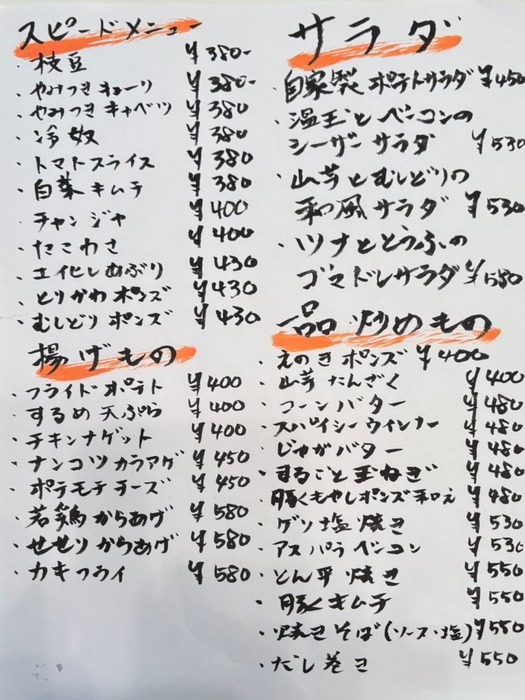 スピードメニュー
・枝豆 ¥380-
・やみつききゅーり ¥380-
・やみつきキャベツ ¥380
・冷奴 ¥380
・トマトスライス ¥380
・白菜キムチ ¥380
・チャンジャ ¥400
・たこわさ ¥400
・エイヒレあぶり ¥430
・とりかわポンズ ¥430
・むしどりポンズ ¥430
揚げもの
・フライドポテト ¥400
・するめ天ぷら ¥400
・チキンナゲット ¥400
・ナンコツカラアゲ ¥450
・ポテモチチーズ ¥450
・若鶏からあげ ¥580
・せせりからあげ ¥580
・カキフライ ¥580
サラダ
・自家製ポテトサラダ ¥450
・温玉とベーコンの
シーザーサラダ ¥530
・山芋とむしどりの
和風サラダ ¥530
・ツナととうふの
ゴマドレサラダ ¥580
一品炒めもの
・えのきポンズ ¥400
・山芋たんざく ¥400
・コーンバター ¥480
・スパイシーウインナー ¥480
・じゃがバター ¥480
・まるごと玉ねぎ ¥480
・豚ともやしポンズ和え ¥480
・ゲソ塩焼き ¥530
・アスパラベーコン ¥530
・とん平焼き ¥550
・豚キムチ ¥550
・焼きそば(ソース・塩) ¥550
・だし巻き ¥550